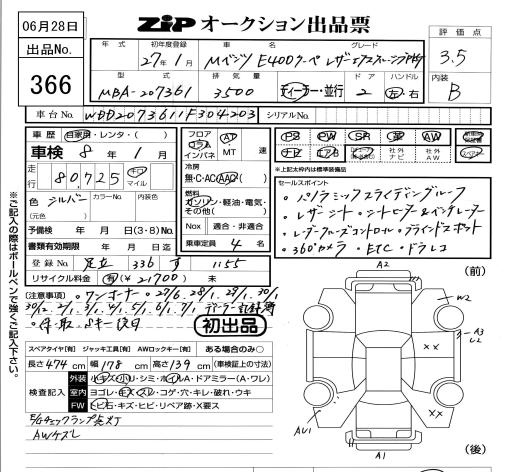 06月28日
出品No.
366
ZIP オークション出品票
評価点
3.5
内装
B
年式 初年度登録 車名 グレード
27年1月 Mベンツ E400クーペ レザーエクスクルーシブPKG
型式 排気量 ドア ハンドル
MBA-207361 3500 ディーラー・並行 2 左・右
車台No. WDD2073611F304203 シリアルNo.
車歴 自家用・レンタ・( )
車検 8年1月
走行 80,725 キロ マイル
色 シルバー カラーNo. 内装色
(元色)
予備検 年 月 日(3・8)No.
書類有効期限 年 月 日迄
登録No. 足立 336 す 1155
リサイクル料金 有(¥21700) 未
フロア コラム インパネ AT MT 速
冷房
無・C・AC・AAC( )
燃料
ガソリン・軽油・電気・その他( )
Nox 適合・非適合
乗車定員 4名
PS PW SR 革 AW
ナビ エアB 社外ナビ 社外AW
*上記太枠内は標準装備品
セールスポイント
・パノラミックスライディングルーフ
・レザーシート ・シートヒーター&ベンチレーター
・レーダークルーズコントロール ・ブラインドスポット
・360°カメラ ・ETC ・ドラレコ
(注意事項) ・ワンオーナー ・27/6. 28/1. 29/1. 30/1
30/12. 2/1. 3/1. 4/1. 5/1. 6/1. 7/1 ディーラー記録簿
・保・取 Sキー
初出品
スペアタイヤ[有] ジャッキ工具[有] AWロックキー[有] ある場合のみ○
長さ 474 cm 幅 178 cm 高さ 139 cm (車検証上の寸法)
検査記入
外装 小キズ・小ヘコ・シミ・ホイルA・ドアミラー(A・ワレ)
室内 ヨゴレ・キズ・スレ・コゲ・穴・キレ・破れ・ウキ
FW トビ石・キズ・ヒビ・リペア跡・X要ス
E/Gチェックランプ点灯
AWキズレ
※ご記入の際はボールペンで強くご記入下さい。
(前)
A2
W2
A3
U2
××
××
AU1
A1
(後)